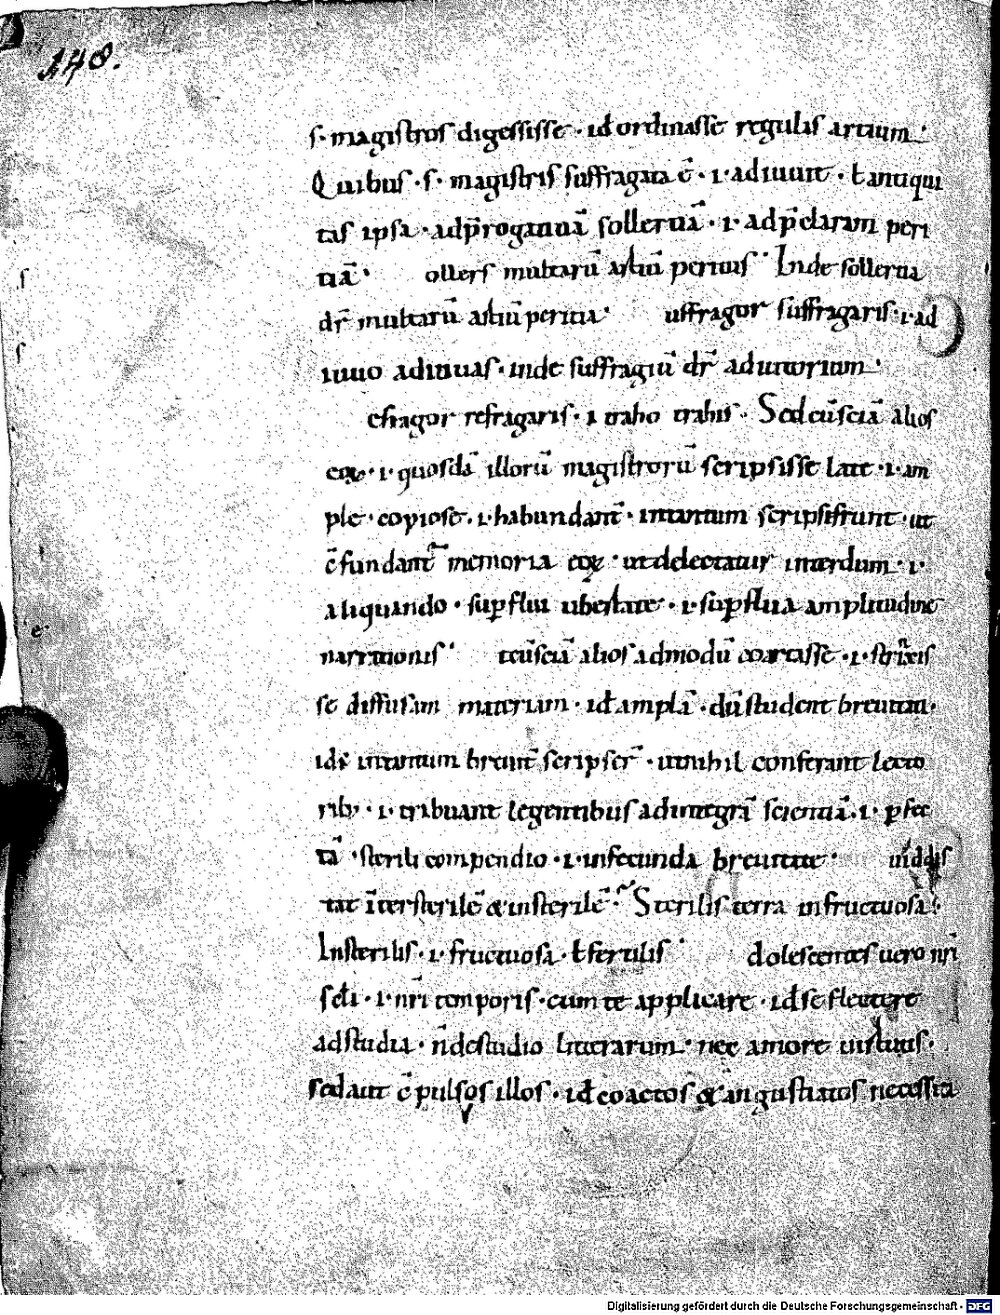 148.
.s. magistros digessisse · id ordinasse regulis artium ·
Quibus · s · magistris suffragata ē · i · adiuuit · ł antiqui
tas ipsa · adp̄rogatiuā sollertiā · i · adp̄claram peri
tiā · ollers multarū artiū peritus · Inde sollertia
s
dr̄ multarū artiū peritia · uffragor suffragaris · i · ad
s
iuuo adiuuas · inde suffragiū dr̄ adiutorium ·
efragor refragaris · i traho trahis · Sed cū sciā alios
eoꝝ · i · quosdā illorū magistrorū scripsisse late · i · am
ple · copiose · i · habundant̄ · intantum scripserunt · ut
memoria eoꝝ · interdum · i ·
aliquando · suꝑflui ubertate · i · suꝑflua amplitudine
e ·
narrationis · cū sciā alios admodū coartasse · i · strinxis
se diffusam materiam · id amplā · dū student breuitati ·
intantum breuit̄ scripser̄ · ut nihil conferant lecto
rib; · i · tribuant legentibus ad integrā scientiā · i · ꝑfec
tā · sterili compendio · i · infecunda breuitate ·
tat īter sterilē & insterilē · Sterilis terra infructuosa ·
Insterilis · i · fructuosa · ł fertilis · dolescentes uero nr̄i
scł̄i · i · nr̄i temporis · cum te applicare · id se flectere
ad studia · n̄ de studio litterarum · nec amore uirtutis ·
sed aut ē pulsos illos · id coactos & angustiatos necessita
Digitalisierung gefördert durch die Deutsche Forschungsgemeinschaft - DFG